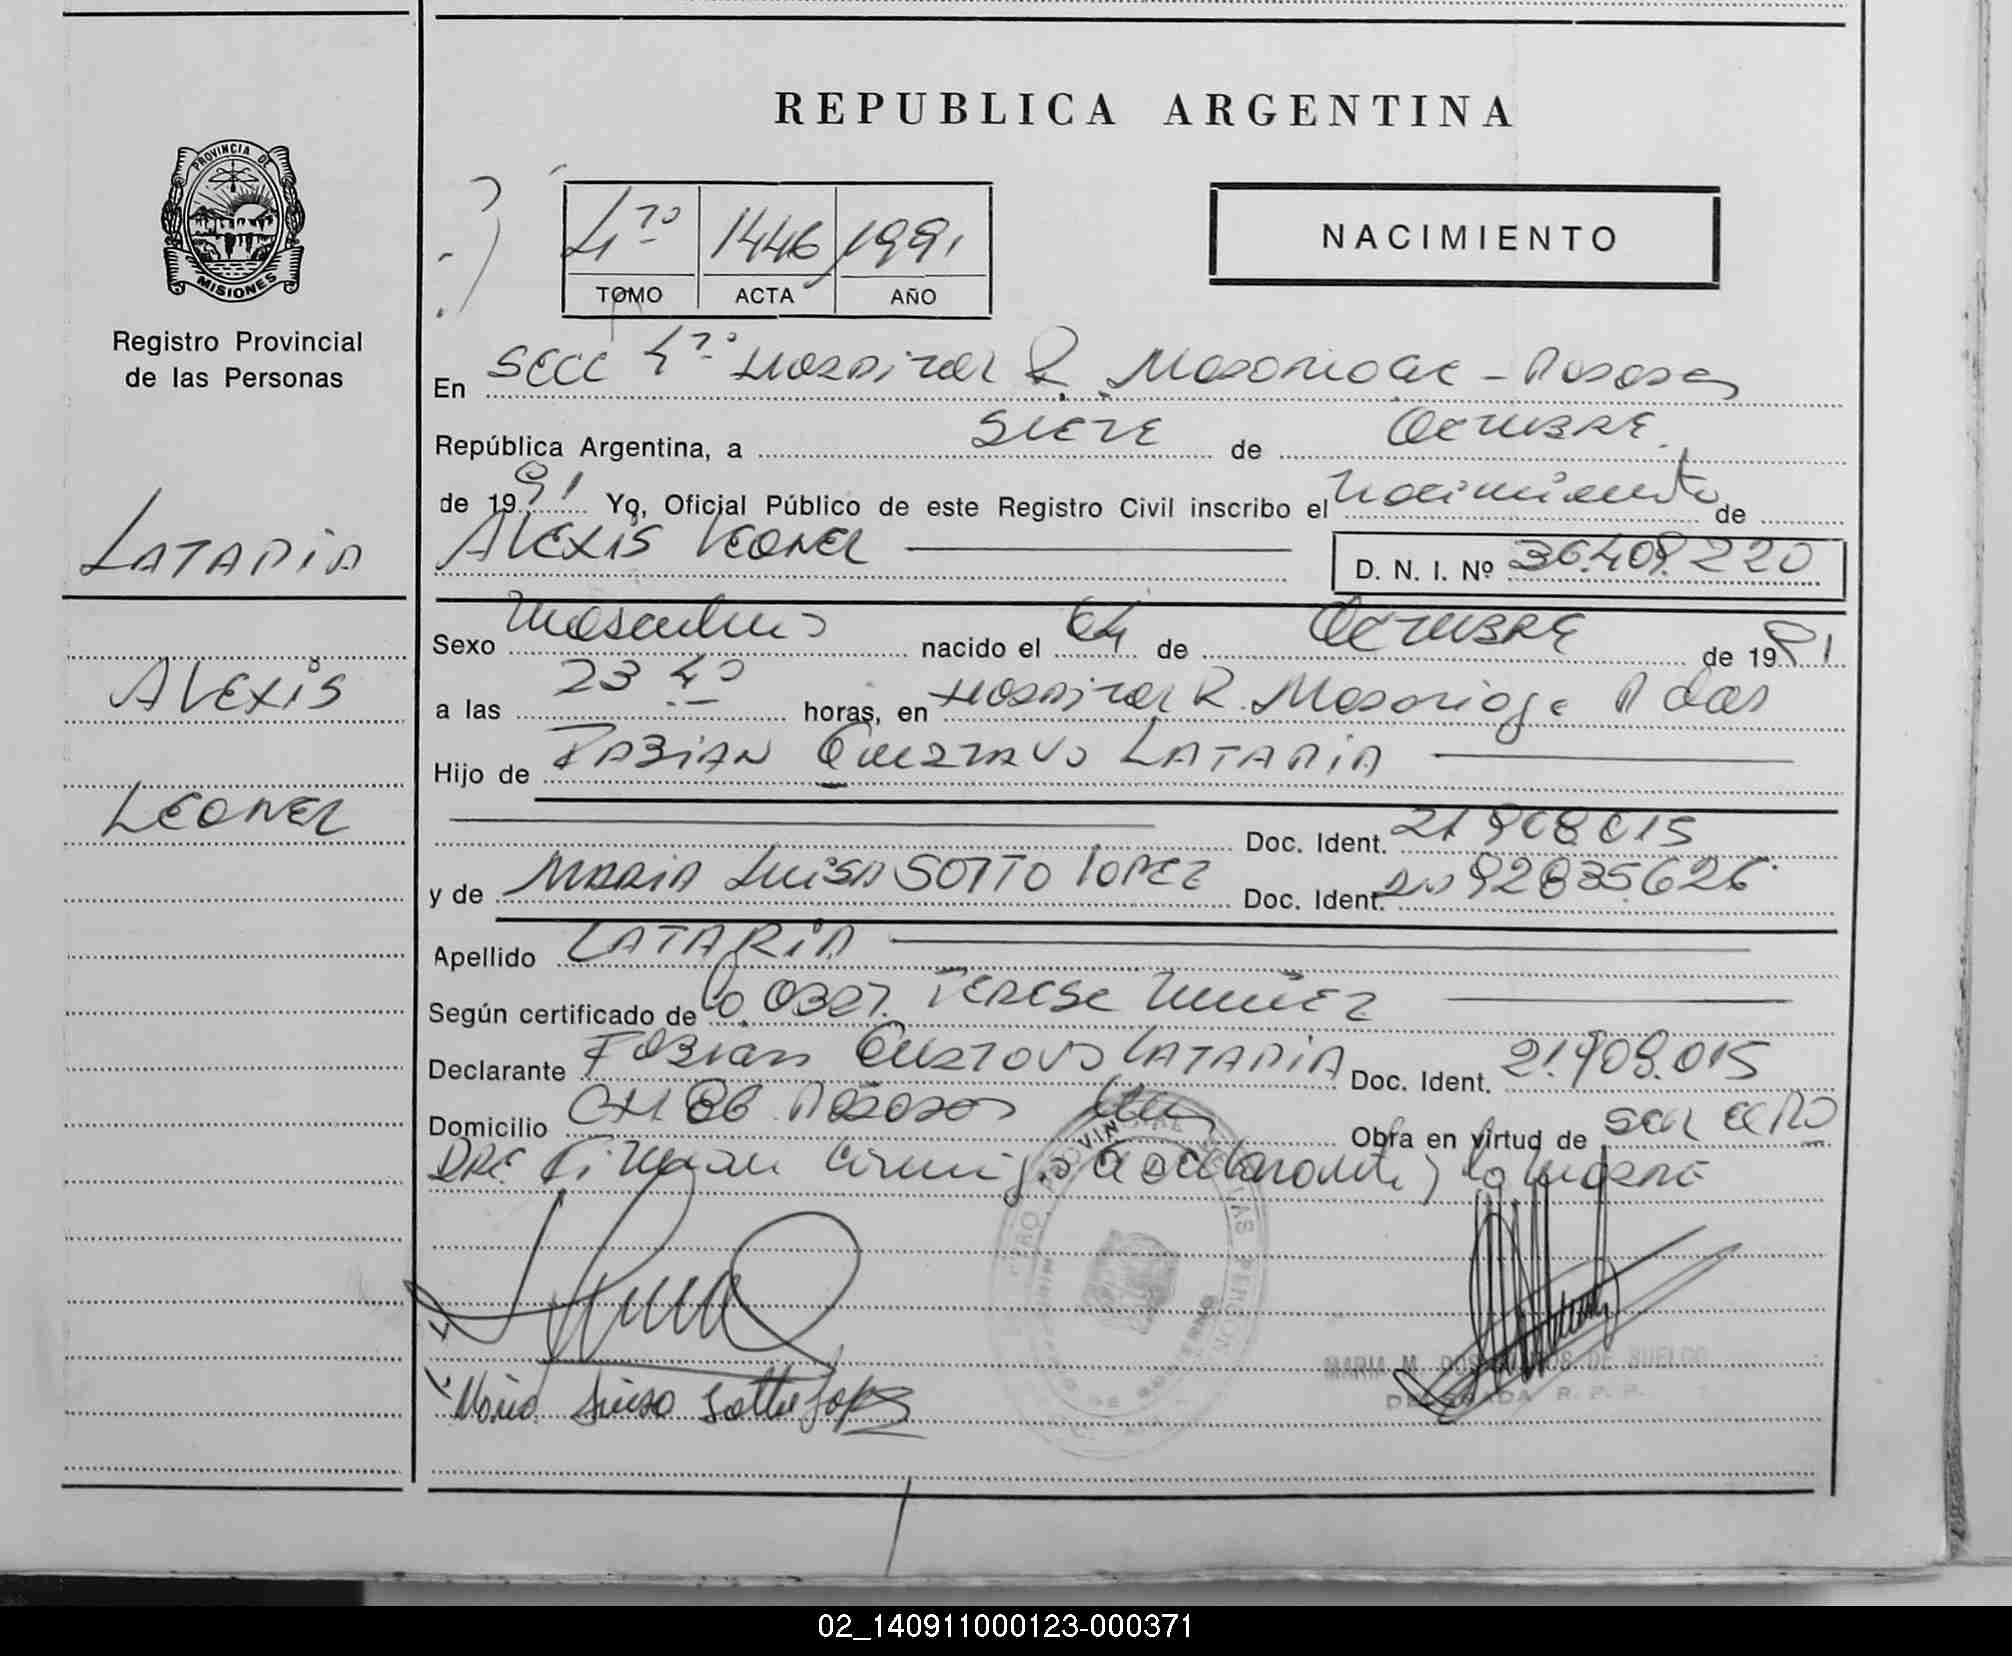 REPUBLICA ARGENTINA
PROVINCIA DE
MISIONES
Registro Provincial
de las Personas
4to 1446 1991
TOMO ACTA AÑO
NACIMIENTO
En SECC 4to Hospital R. Madariaga - Posadas
República Argentina, a SIETE de OCTUBRE
de 1991 Yo, Oficial Público de este Registro Civil inscribo el Nacimiento de
LATARIA
ALEXIS LEONEL D. N. I. Nº 36.409.220
Sexo Masculino nacido el 04 de OCTUBRE de 1991
ALEXIS
a las 23 40 horas, en Hospital R. Madariaga Pdas
Hijo de FABIAN GUSTAVO LATARIA
LEONEL
Doc. Ident. 21.908.015
y de MARIA LUISA SOTTO LOPEZ Doc. Ident. 92835626
Apellido LATARIA
Según certificado de la Obst. TERESA NUÑEZ
Declarante FABIAN GUSTAVO LATARIA Doc. Ident. 21.908.015
Domicilio CH 86 Posadas Obra en virtud de ser
PADRE Firman conmigo declarante y la madre
Maria Luisa Sotto Lopez
MARIA M. DOS SANTOS DE
DELEGADA R. P. P.
02_140911000123-000371